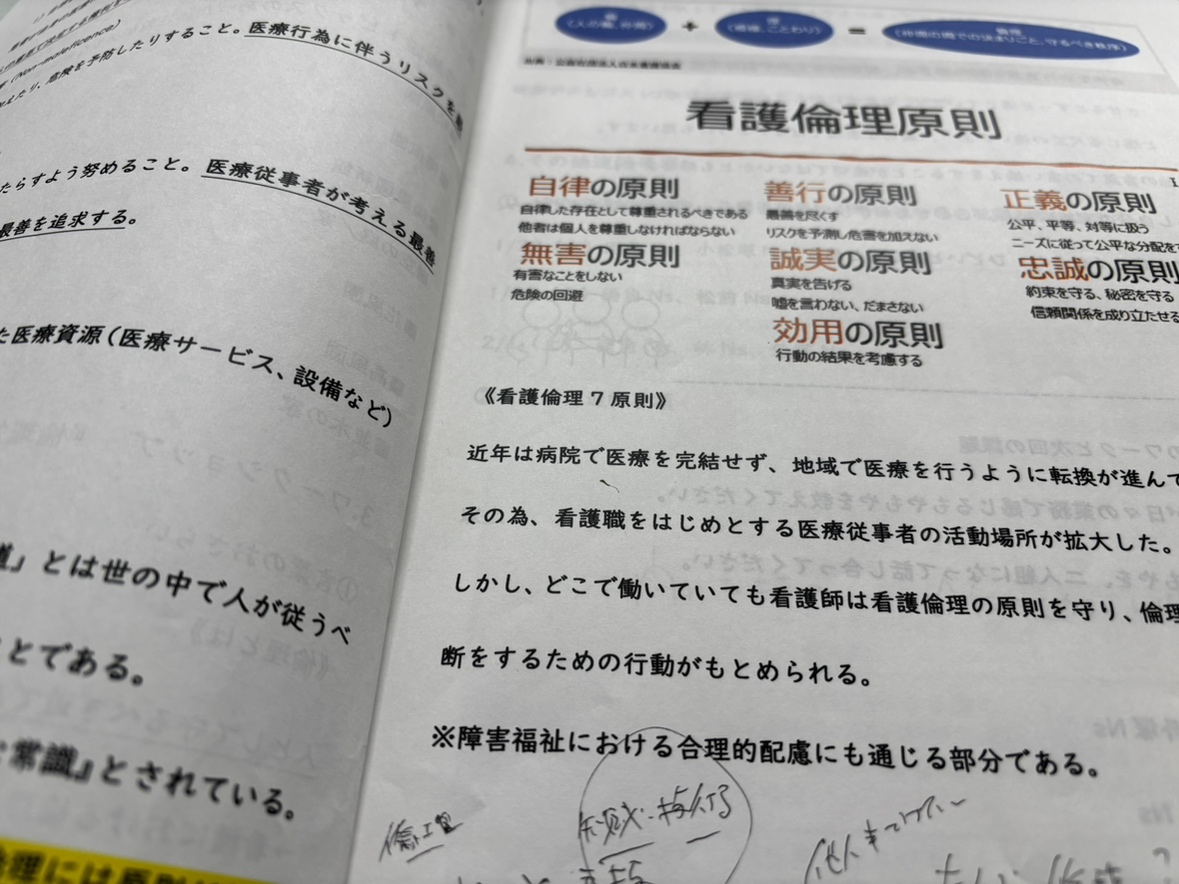 (Non-maleficence)
危険を予防したりすること。医療行為に伴うリスクを
たらすよう努めること。医療従事者が考える最善
最善を追求する。
た医療資源(医療サービス、設備など)
」とは世の中で人が従うべ
とである。
常識』とされている。
+
=
看護倫理原則
自律の原則
自律した存在として尊重されるべきである
他者は個人を尊重しなければならない
無害の原則
有害なことをしない
危険の回避
善行の原則
最善を尽くす
リスクを予測し危害を加えない
誠実の原則
真実を告げる
嘘を言わない、だまさない
効用の原則
行動の結果を考慮する
正義の原則
公平、平等、対等に扱う
ニーズに従って公平な分配を
忠誠の原則
約束を守る、秘密を守る
信頼関係を成り立たせる
《看護倫理7原則》
近年は病院で医療を完結せず、地域で医療を行うように転換が進んで
その為、看護職をはじめとする医療従事者の活動場所が拡大した。
しかし、どこで働いていても看護師は看護倫理の原則を守り、倫理
断をするための行動がもとめられる。
※障害福祉における合理的配慮にも通じる部分である。